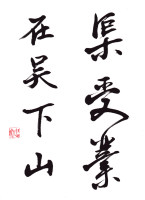 渠受業
在吴下山